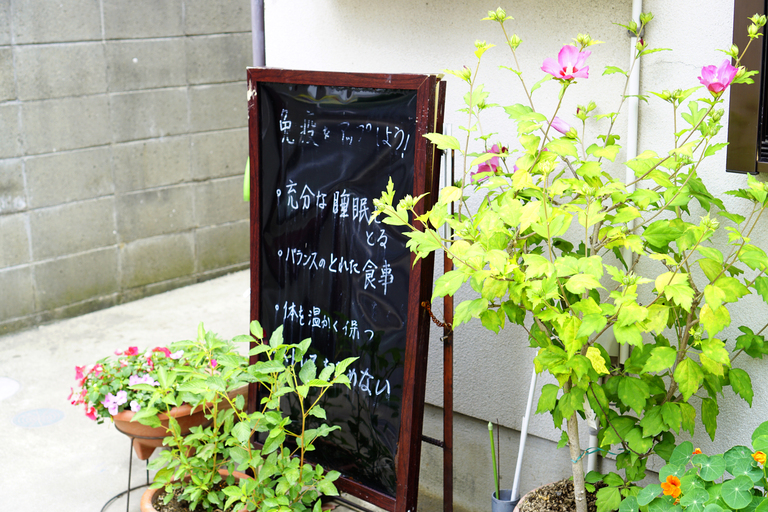 免疫を しよう!
・充分な睡眠
とる
・バランスのとれた食事
・体を温かく保つ
めない